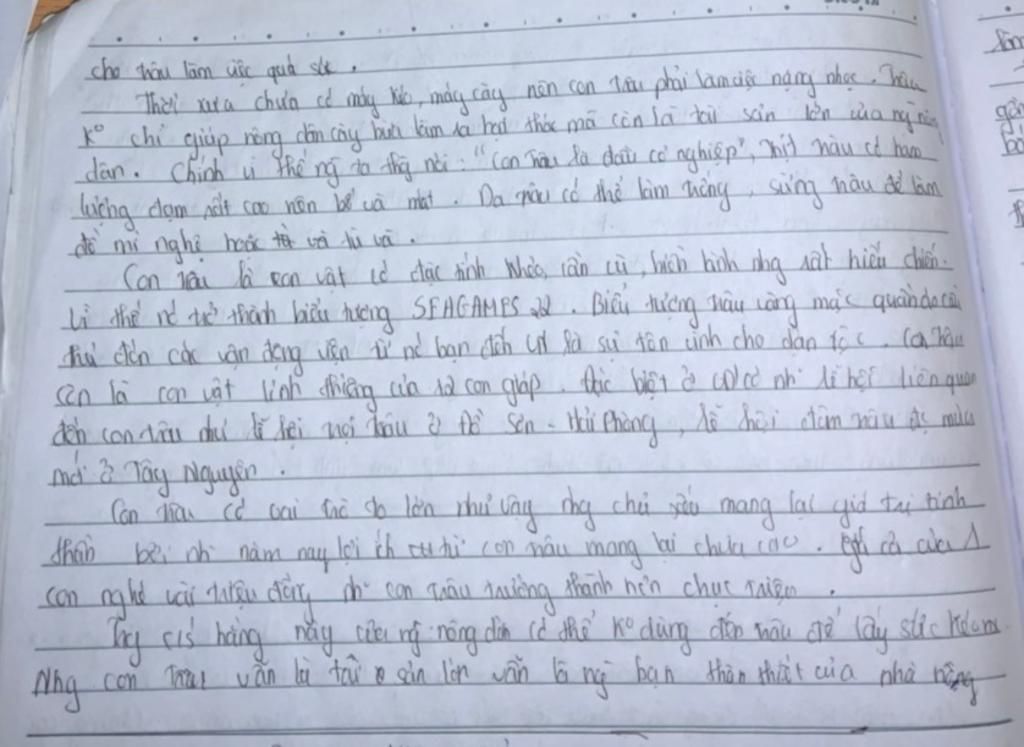 cho trâu làm việc quá sức.
Thời xưa chưa có máy kéo, máy cày nên con trâu phải làm việc nặng nhọc. Trâu
k° chỉ giúp nông dân cày bừa làm ra hạt thóc mà còn là tài sản lớn của ng nông
dân. Chính vì thế ng ta thg nói: "Con trâu là đầu cơ nghiệp", thịt trâu có hàm
lượng đạm rất cao nên bổ và mát. Da trâu có thể làm trống, sừng trâu để làm
đồ mĩ nghệ hoặc tù và
Con trâu là con vật có đặc tính khỏe, cần cù, hiền lành nhg rất hiếu chiến.
Vì thế nó trở thành biểu tượng SEAGAMES 22. Biểu tượng trâu vàng mặc quần áo cầu
thủ đón các vận động viên từ nc bạn đến VN là sự tôn vinh cho dân tộc. Con trâu
còn là con vật linh thiêng của 12 con giáp. Đặc biệt ở VN có nh` lễ hội liên quan
đến con trâu như lễ hội chọi trâu ở Đồ Sơn - Hải Phòng, lễ hội đâm trâu mùa
mới ở Tây Nguyên.
Con trâu có vai trò to lớn như vậy nhg chủ yếu mang lại giá trị tinh
thần bởi nh` năm nay lợi ích từ con trâu mang lại chưa cao. giá cả của 1
con nghé vài triệu đồng, con trâu trưởng thành hơn chục triệu.
Trg c/s hàng ngày của ng nông dân có thể k° dùng đến trâu để lấy sức kéo
Nhg con trâu vẫn là tài sản lớn vẫn là ng bạn thân thiết của nhà nông